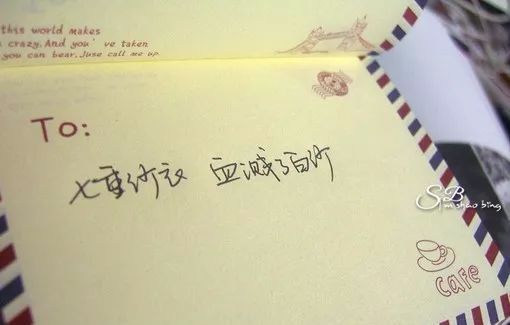 this world makes
crazy.And you've taken
you can bear.Juse call me up.
To:
七重纱衣 血溅了白纱
cafe